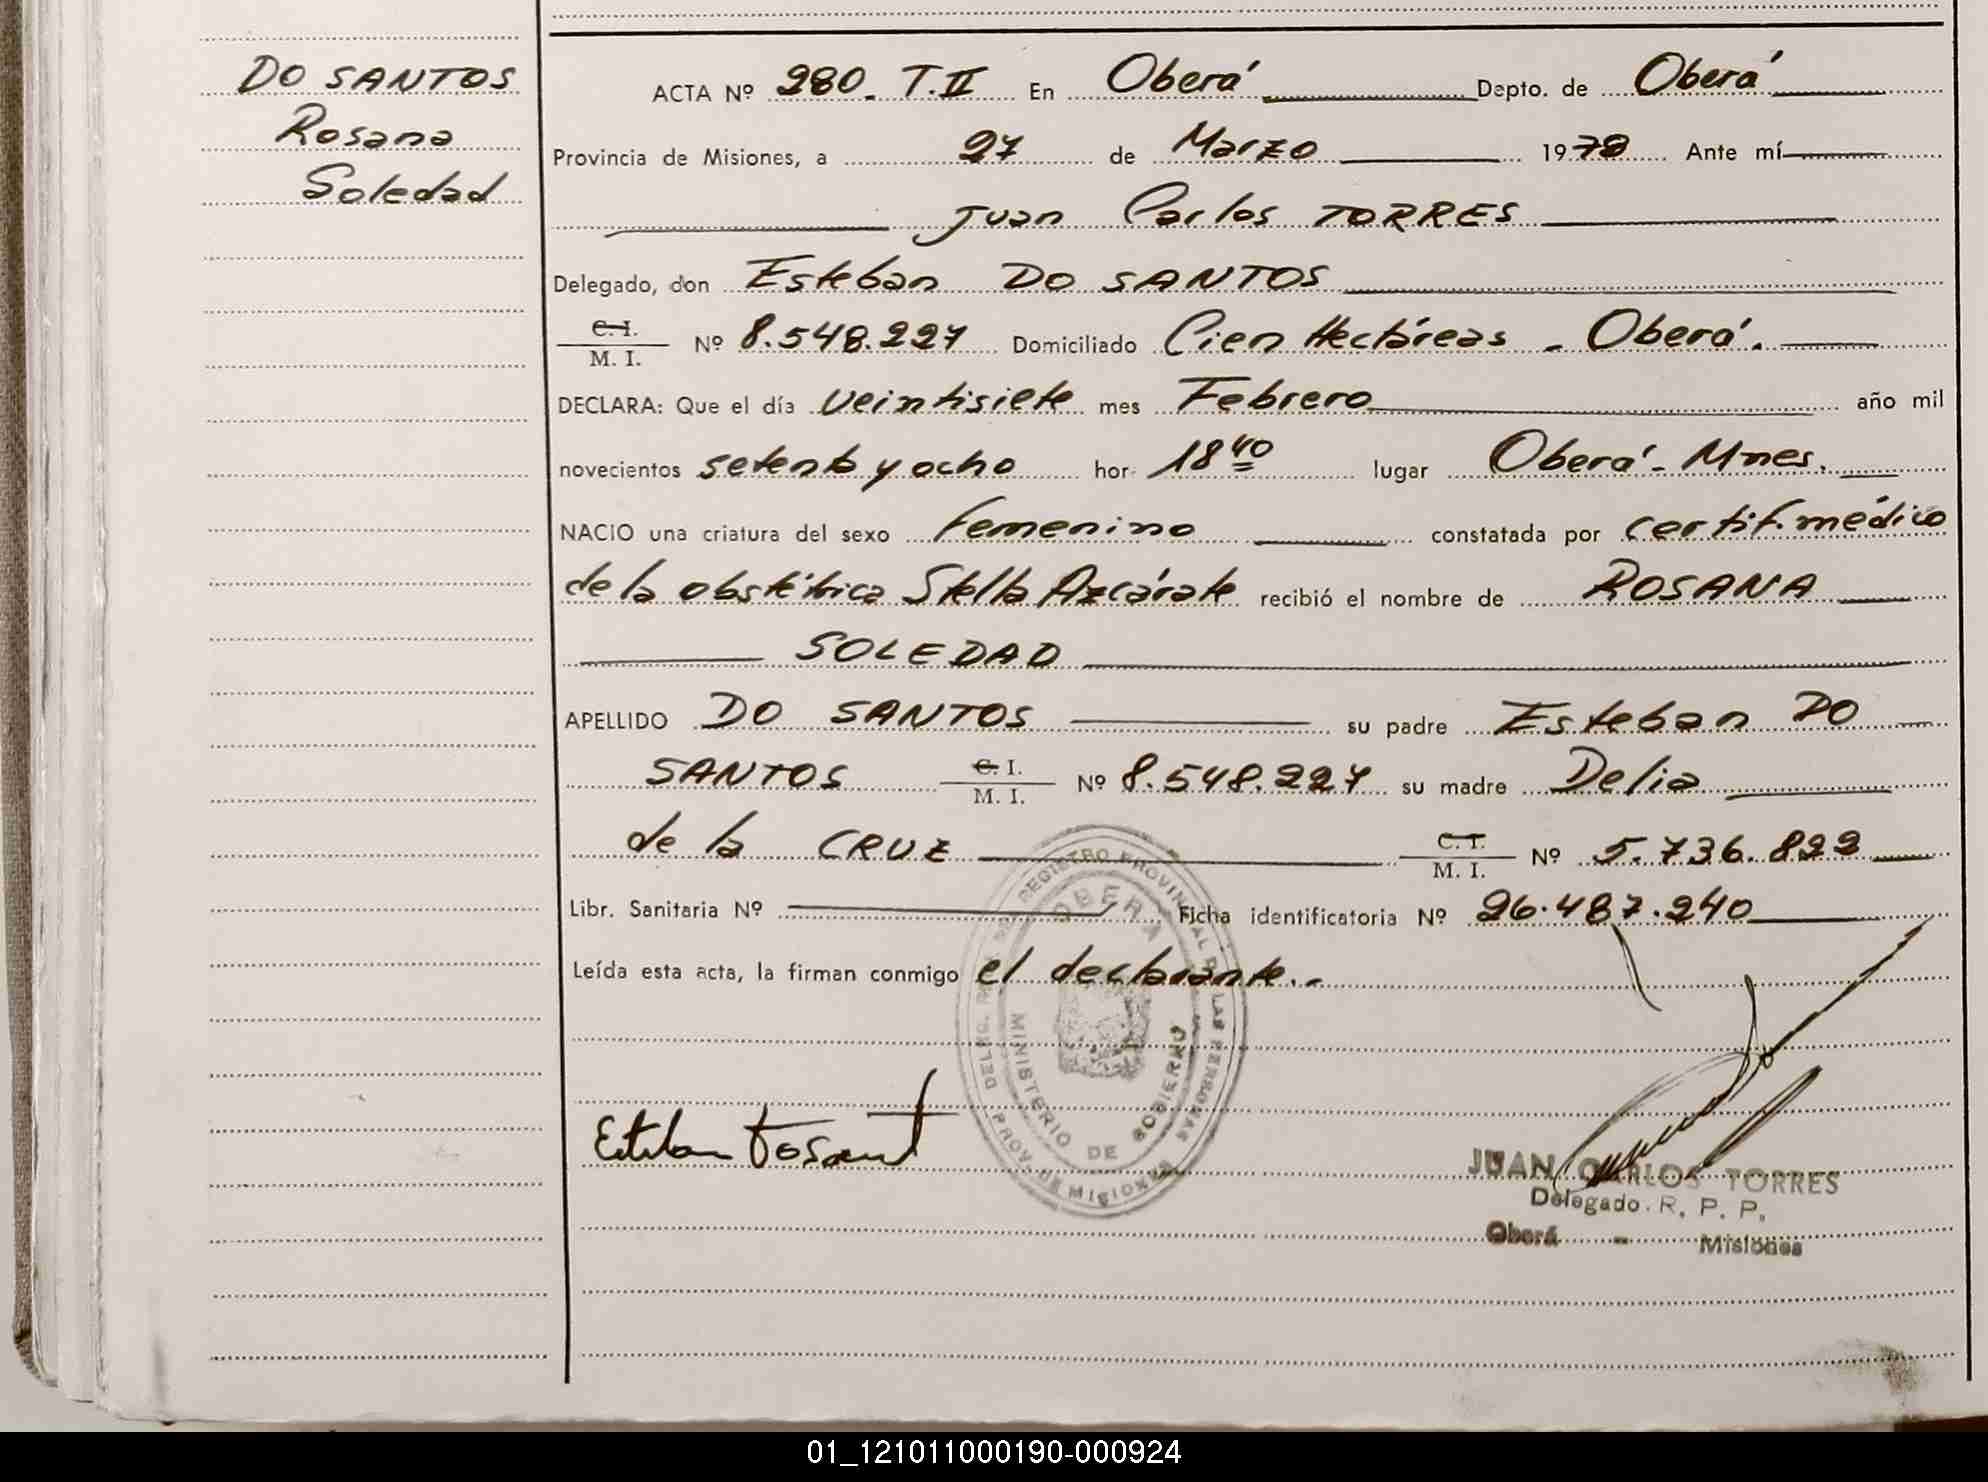 DO SANTOS
Rosana
Soledad
ACTA Nº 280_ T.II En Oberá Depto. de Oberá
Provincia de Misiones, a 27 de Marzo 1978 Ante mí
Juan Carlos TORRES
Delegado, don Esteban DO SANTOS
C. I.
M. I. Nº 8.548.227 Domiciliado Cien Hectáreas - Oberá.
DECLARA: Que el día veintisiete mes Febrero año mil
novecientos setenta y ocho hor. 18 40 lugar Oberá - Mnes.
NACIO una criatura del sexo femenino constatada por certif. médico
de la obstétrica Stella Azcárate recibió el nombre de ROSANA
SOLEDAD
APELLIDO DO SANTOS su padre Esteban DO
SANTOS C. I.
M. I. Nº 8.548.227 su madre Delia
de la CRUZ C. I.
M. I. Nº 5.736.822
Libr. Sanitaria Nº Ficha identificatoria Nº 26.487.240
Leída esta acta, la firman conmigo el declarante.-
REGISTRO PROVINCIAL DE LAS PERSONAS
OBERA
MINISTERIO DE GOBIERNO
PROV. DE MISIONES
JUAN CARLOS TORRES
Delegado. R. P. P.
Oberá - Misiones
01_121011000190-000924